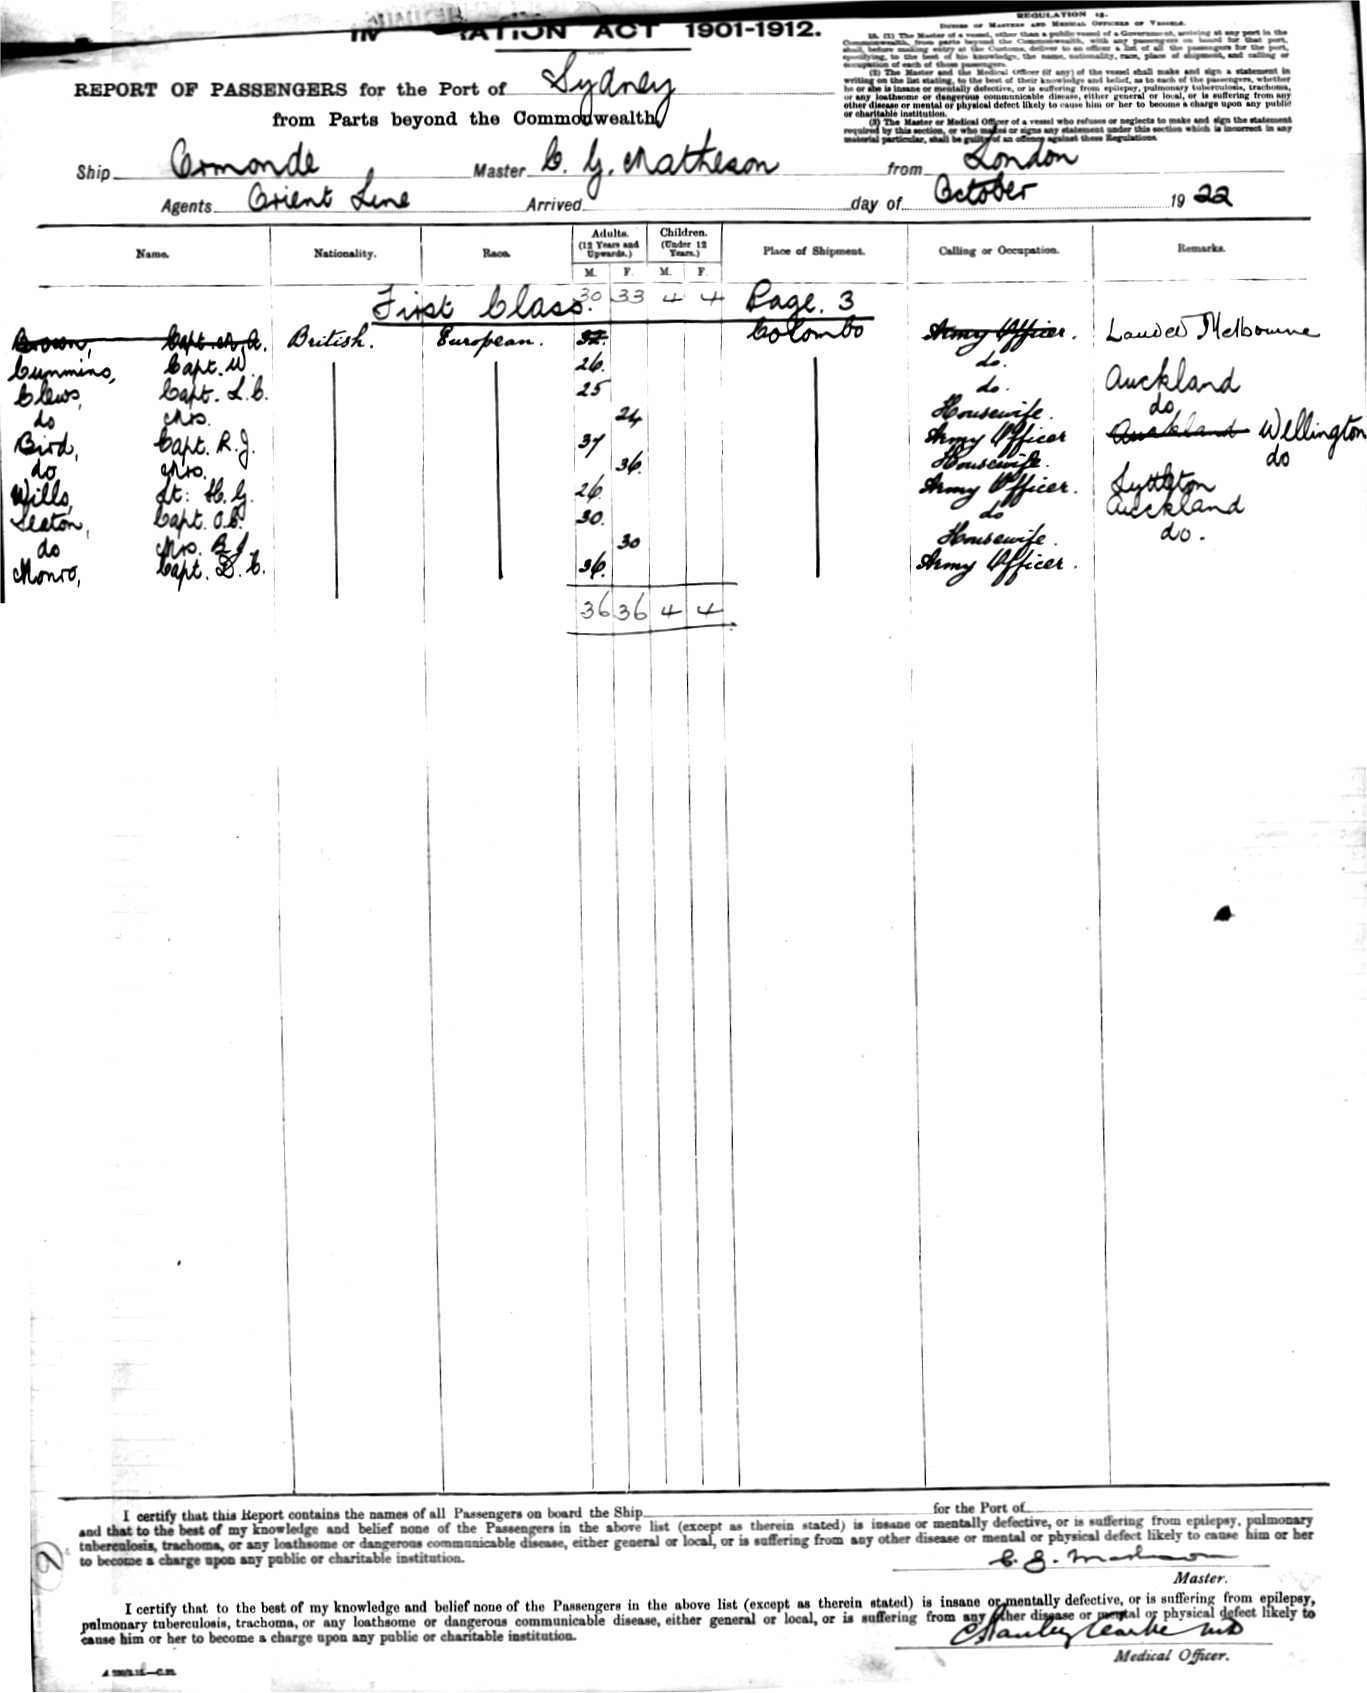 ATION ACT 1901-1912.
REGULATION
DUTIES OF MASTERS AND MEDICAL OFFICERS OF VESSELS.
(1) The Master of a vessel, other than a public vessel of a Government, arriving at any port in the
Commonwealth, from parts beyond the Commonwealth, with any passengers on board for that port,
shall, before making entry at the Customs, deliver to an officer a list of all the passengers for the port,
specifying, to the best of his knowledge, the name, nationality, race, place of shipment, and calling or
occupation of each of those passengers.
(2) The Master and the Medical Officer (if any) of the vessel shall make and sign a statement in
writing on the list stating, to the best of their knowledge and belief, as to each of the passengers, whether
he or she is insane or mentally defective, or is suffering from epilepsy, pulmonary tuberculosis, trachoma,
or any loathsome or dangerous communicable disease, either general or local, or is suffering from any
other disease or mental or physical defect likely to cause him or her to become a charge upon any public
or charitable institution.
(3) The Master or Medical Officer of a vessel who refuses or neglects to make and sign the statement
required by this section, or who makes or signs any statement under this section which is incorrect in any
material particular, shall be guilty of an offence against these Regulations.
REPORT OF PASSENGERS for the Port of Sydney
from Parts beyond the Commonwealth
Ship Ormonde Master C. G. Matheson from London
Agents Orient Line Arrived day of October 1922
Name. Nationality. Race. Adults. (12 Years and Upwards.) Children. (Under 12 Years.) Place of Shipment. Calling or Occupation. Remarks.
M. F. M. F.
First Class. 30 33 4 4 Page. 3
Brown, Capt. A. British. European. 32 Colombo Army Officer. Landed Melbourne
Cummins, Capt. W. 26. do.
Clews, Capt. L. C. 25 do. Auckland
do Mrs. 24 Housewife. do
Bird, Capt. R. J. 37 Army Officer Auckland Wellington
do Mrs. 36 Housewife. do
Wills, Lt: H. G. 26 Army Officer. Lyttleton
Seaton, Capt. O. 30. do Auckland
do Mrs. 30 Housewife. do.
Monro, Capt. D. C. 36. Army Officer.
36 36 4 4
I certify that this Report contains the names of all Passengers on board the Ship for the Port of
and that to the best of my knowledge and belief none of the Passengers in the above list (except as therein stated) is insane or mentally defective, or is suffering from epilepsy, pulmonary
tuberculosis, trachoma, or any loathsome or dangerous communicable disease, either general or local, or is suffering from any other disease or mental or physical defect likely to cause him or her
to become a charge upon any public or charitable institution.
C. G. Matheson
Master.
I certify that to the best of my knowledge and belief none of the Passengers in the above list (except as therein stated) is insane or mentally defective, or is suffering from epilepsy,
pulmonary tuberculosis, trachoma, or any loathsome or dangerous communicable disease, either general or local, or is suffering from any other disease or mental or physical defect likely to
cause him or her to become a charge upon any public or charitable institution.
Medical Officer.